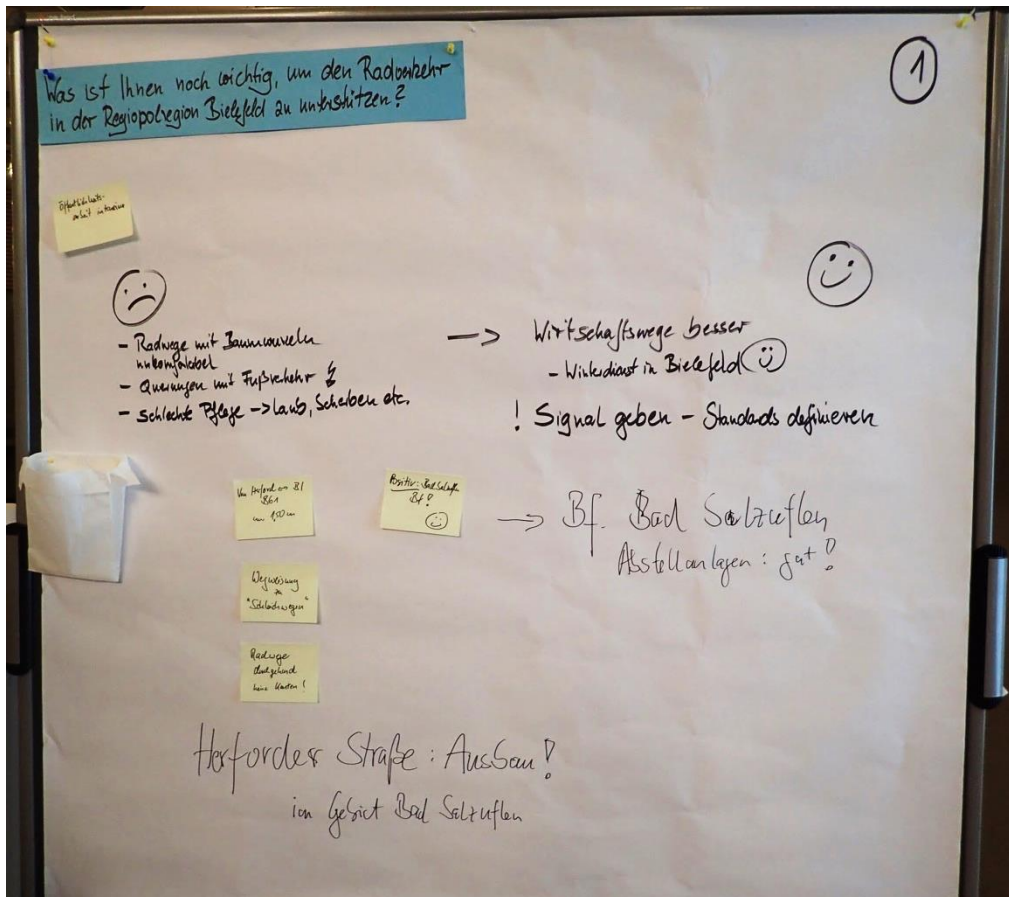 Was ist Ihnen noch wichtig, um den Radverkehr
in der Regiopolregion Bielefeld zu unterstützen?
1
Öffentlichkeits-
arbeit
- Radwege mit Baumwurzeln
unkomfortabel
- Querungen mit Fußverkehr
- schlechte Pflege -> Laub, Scherben etc.
-> Wirtschaftswege besser
- Winterdienst in Bielefeld
! Signal geben - Standards definieren
Von Herford
B61
nur 1,50 m
Positiv: Bad Salzuflen
Bf!
-> Bf. Bad Salzuflen
Abstellanlagen: gut!
Wegweisung
Radwege
durchgehend
keine Kanten!
Herforder Straße: Ausbau!
im Gebiet Bad Salzuflen